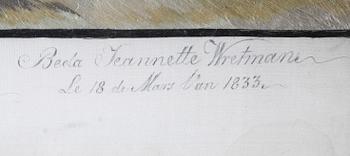 Beda Jeannette Wretman
Le 18 de Mars l'an 1833